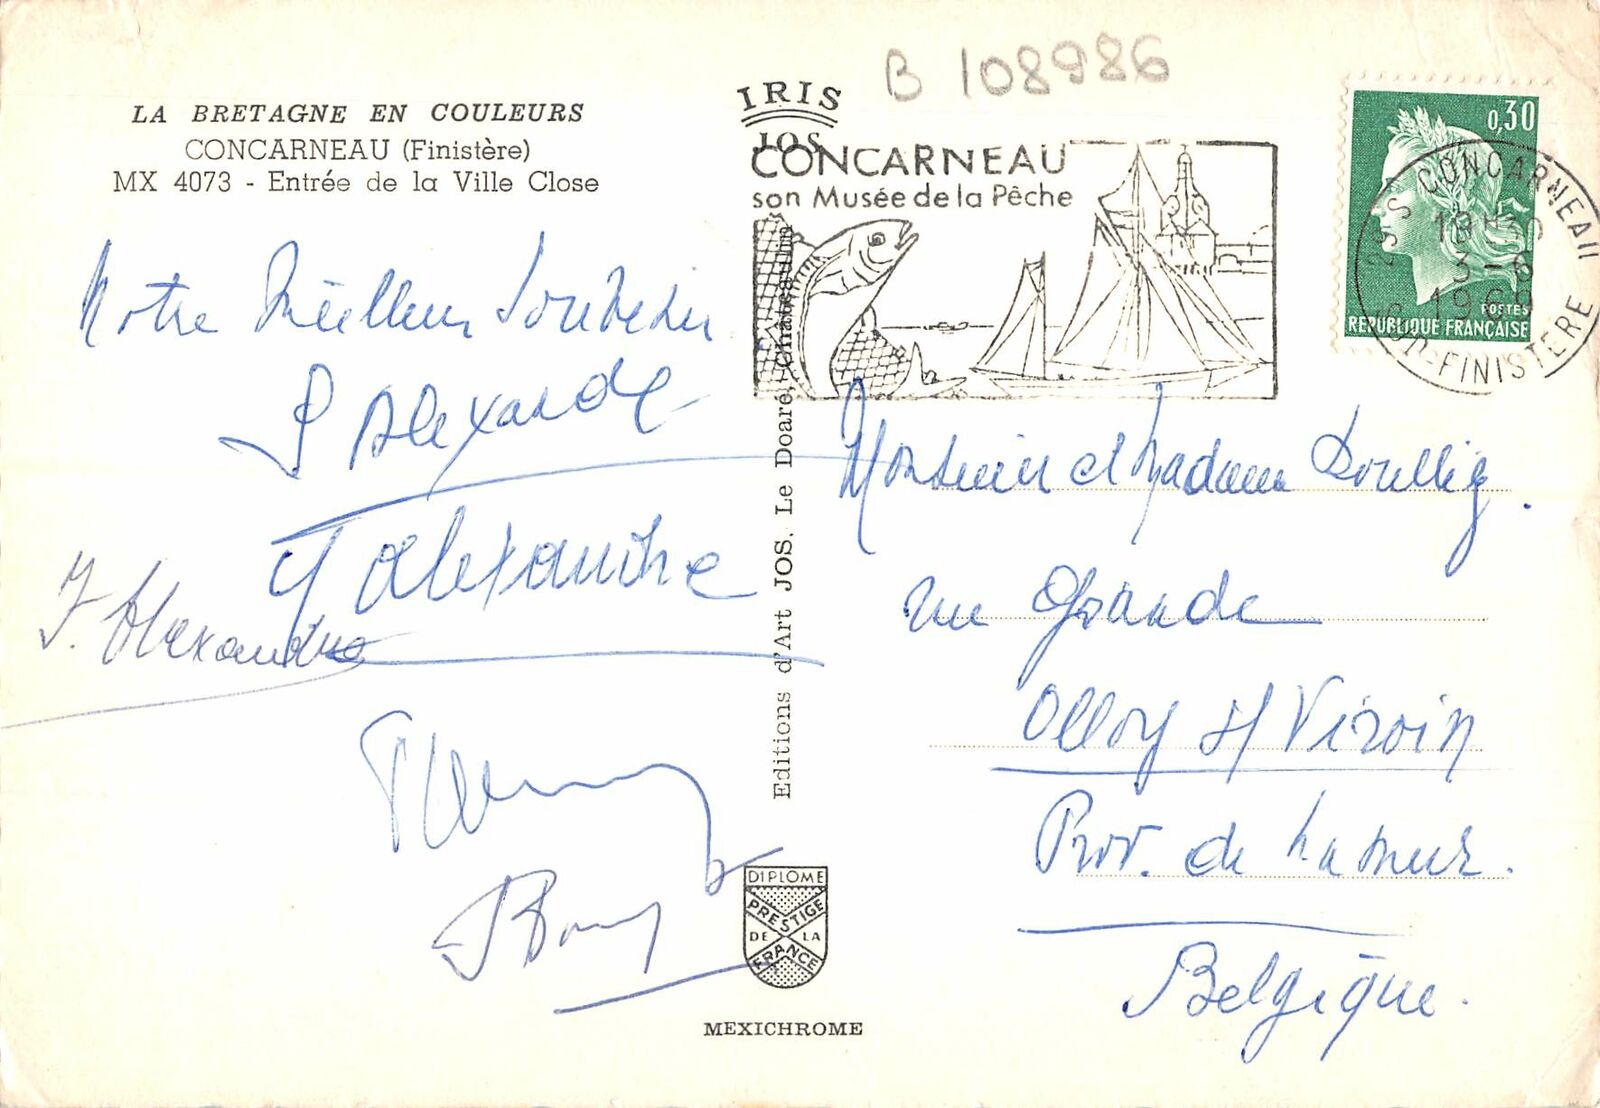 B 108986
LA BRETAGNE EN COULEURS
CONCARNEAU (Finistère)
MX 4073 - Entrée de la Ville Close
IRIS
JOS
CONCARNEAU
son Musée de la Pêche
0,30
POSTES
RÉPUBLIQUE FRANÇAISE
29 S CONCARNEAU
18H30
3-8
1969
SUD-FINISTERE
Notre Meilleur Souvenir
Alexandre
Alexandre
J. Alexandre
Editions d'Art JOS. Le Doaré, Châteaulin
Monsieur et Madame
rue Grande
Olloy s/ Viroin
Prov. de Namur.
Belgique.
DIPLOME
PRESTIGE
DE LA
FRANCE
MEXICHROME